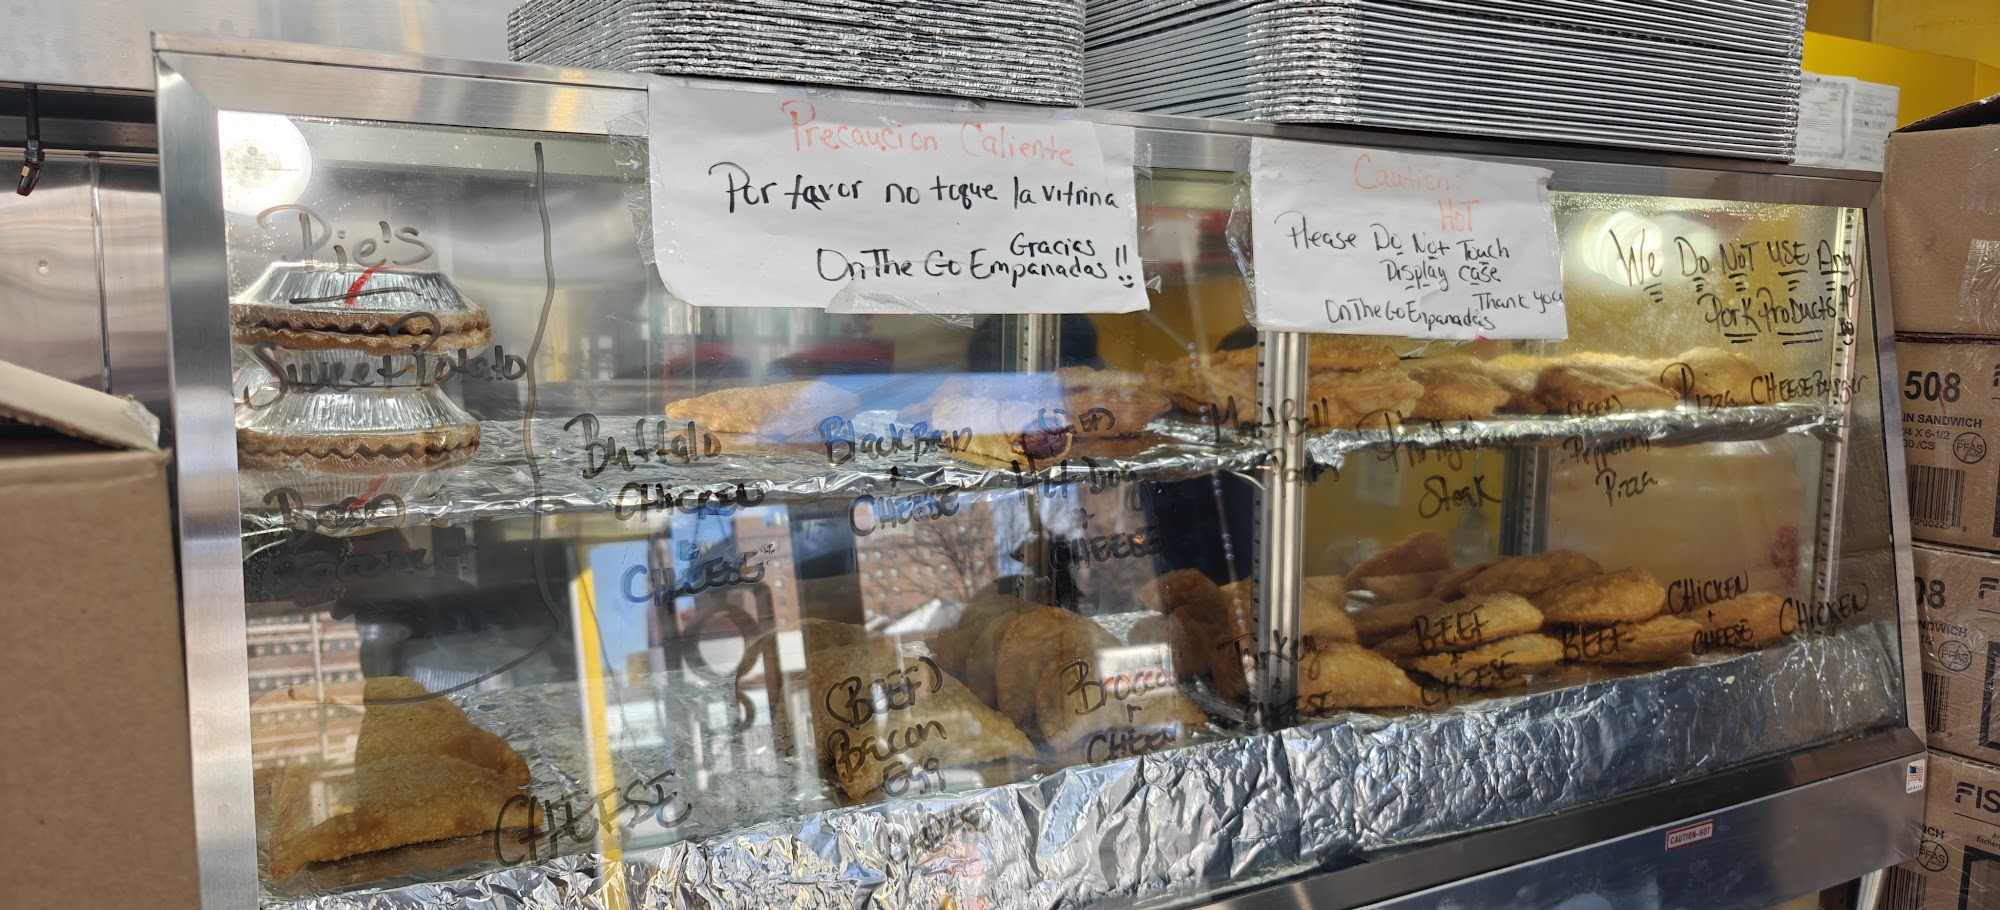 Precaucion Caliente
Por favor no toque la vitrina
Gracias
OnThe Go Empanadas !!
Caution:
HOT
Please Do Not Touch
Display case
Thank you
OnTheGoEmpanadas
We Do NOT USE Any
Pork Products
Pie's
Sweet Potato
Bean
Buffalo
CHICKEN
+
CHEESE
Black Bean
+
CHEESE
(BEEF)
Hot Dog
+
CHEESE
Meat Ball
Parm
Philly Cheese
Steak
(BEEF)
Pepperoni
Pizza
Pizza
CHEESEBurger
CHEESE
(BEEF)
Bacon
Egg
Broccoli
+
CHEESE
Turkey
+
CHEESE
BEEF
+
CHEESE
BEEF
CHICKEN
+
CHEESE
CHICKEN
CAUTION-HOT
508
IN SANDWICH
PFAS
508
PFAS
FIS
PFAS